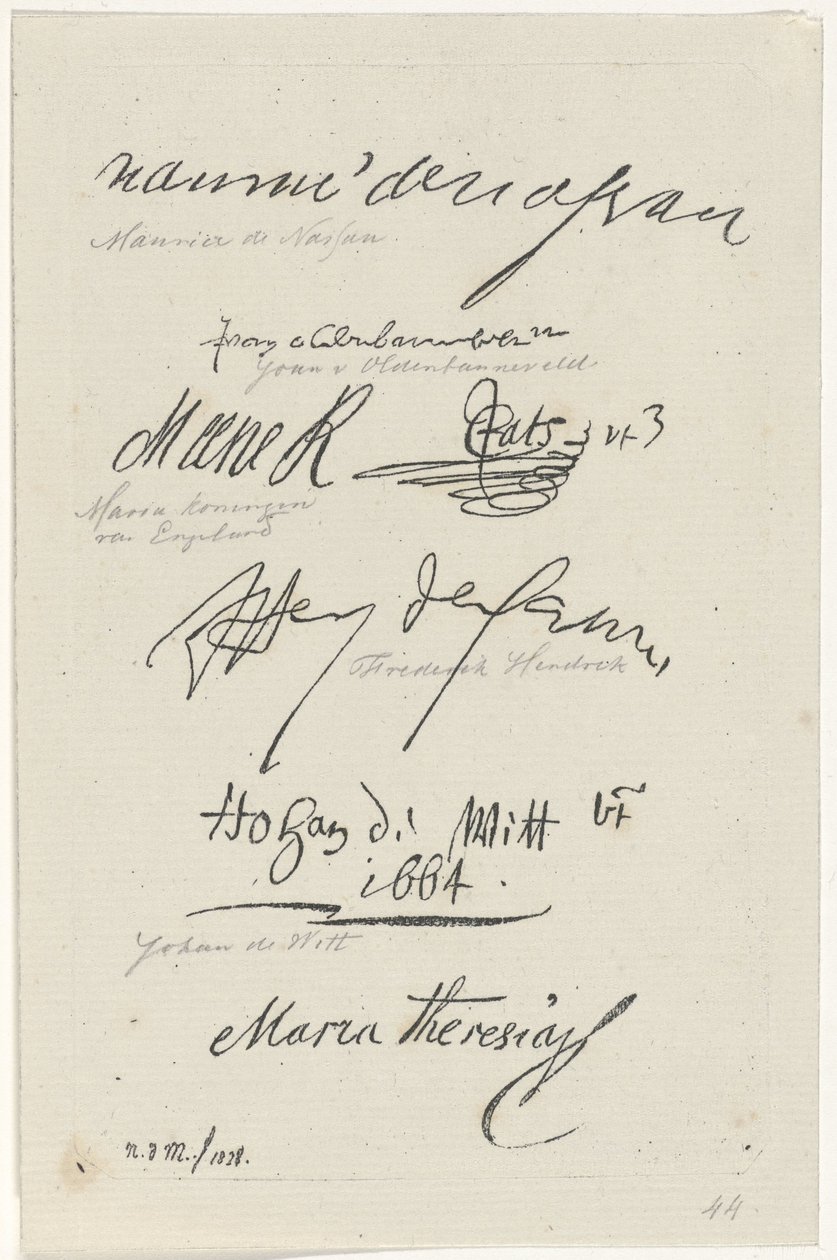 Maurice de Nassau
Maurice de Nassau
Johan v Oldenbarneveld
Marie R Cats
Maria koningin
van Engeland
F Henry de Nassau
Frederik Hendrik
Johan de Witt
1664.
Johan de Witt
Maria Theresia
n. d M. f 1828.
44